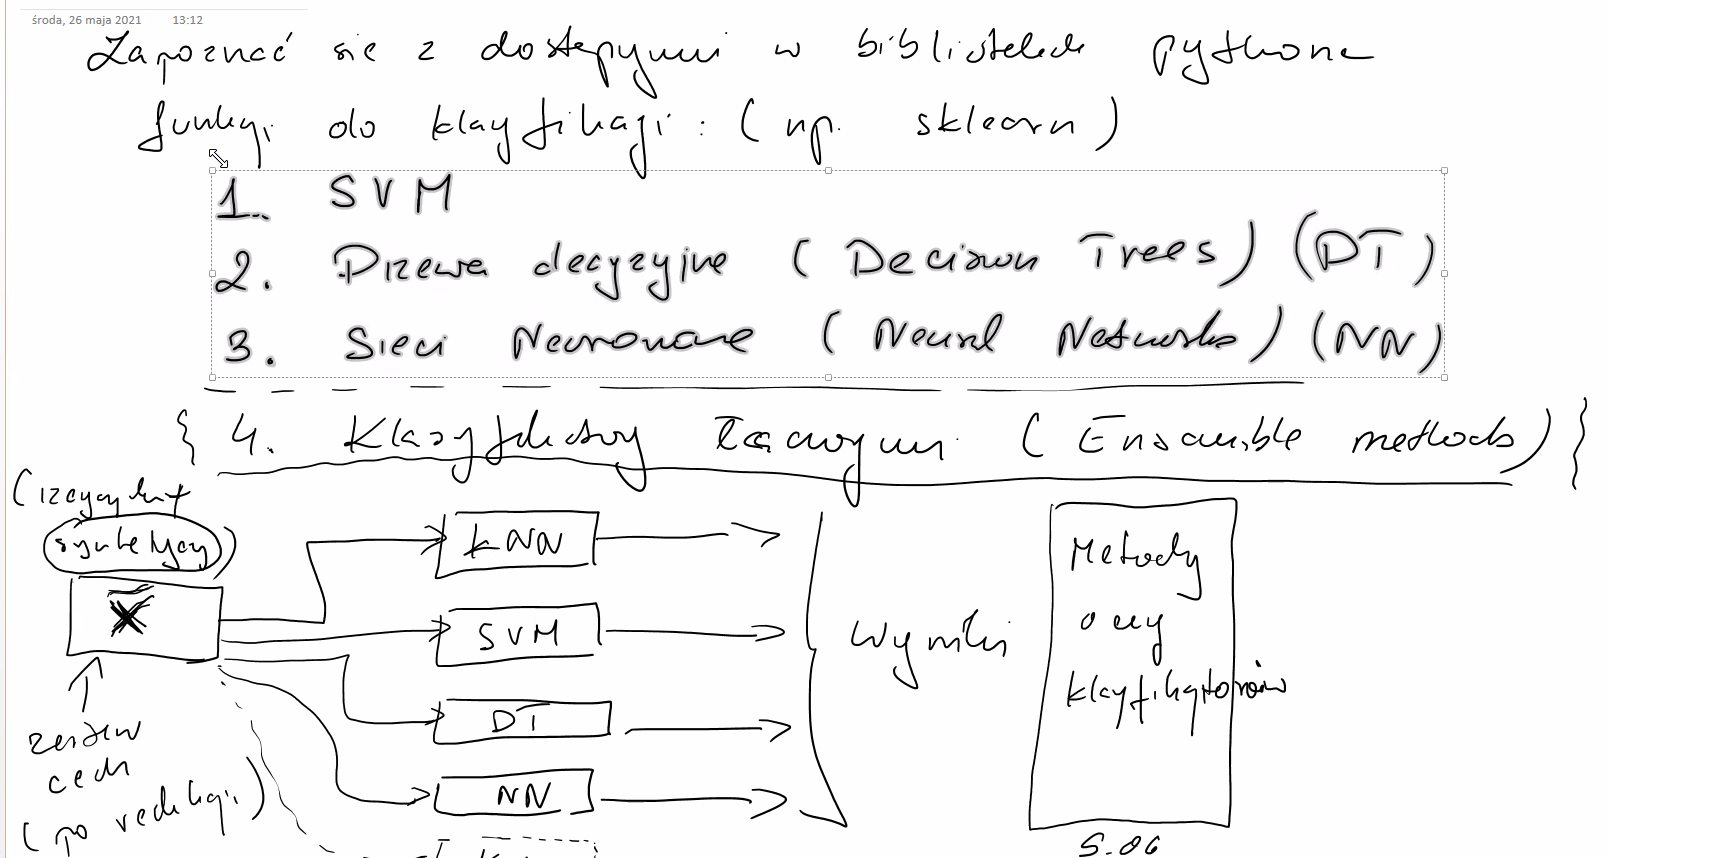 środa, 26 maja 2021 13:12
Zapoznać się z dostępymi w bibliotekach pythona
funkcji do klasyfikacji: (np. sklearn)
1. SVM
2. Drzewa decyzyjne (Decision Trees) (DT)
3. Sieci Neuronowe (Neural Networks) (NN)
{ 4. Klasyfikatory łączonymi (Ensamble methods) }
(rzeczywisty
syntetyczny)
X
zestaw
cech
(po redukcji)
kNN
SVM
DT
NN
wyniki
Metody
oceny
klasyfikatorów
5.06